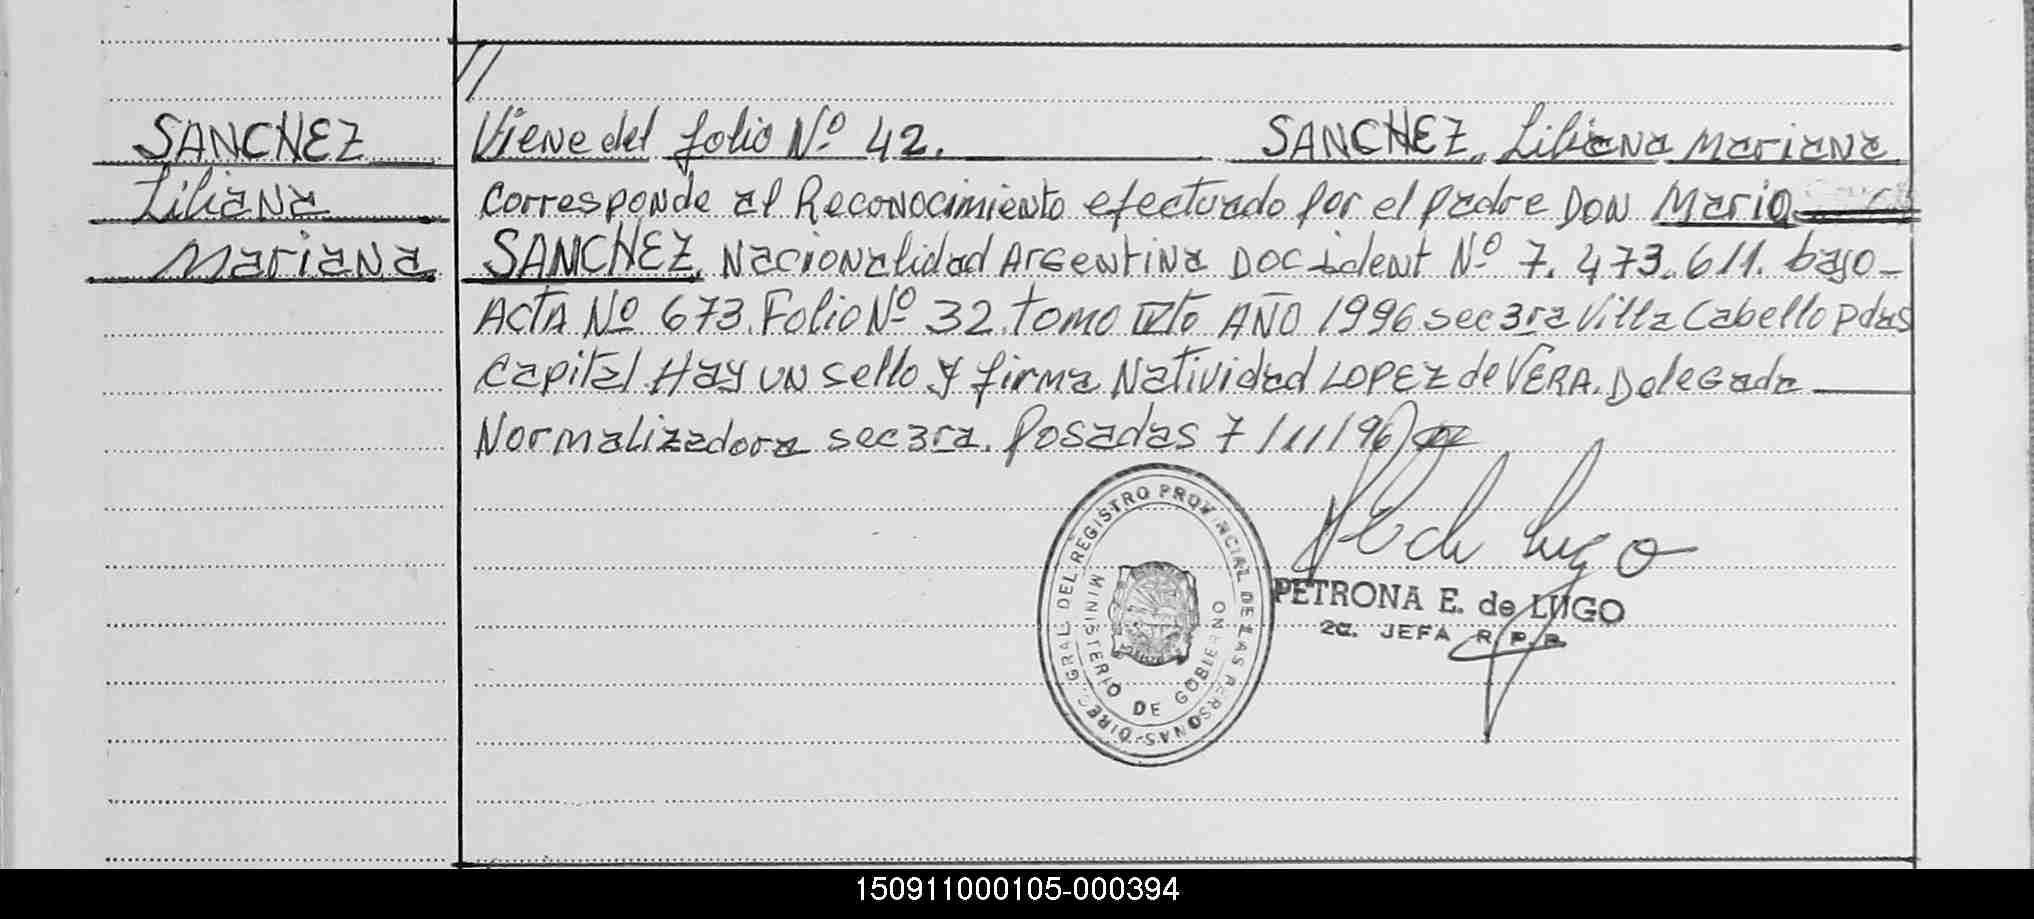 //
SANCHEZ
Liliana
Mariana
Viene del folio Nº 42. SANCHEZ, Liliana Mariana
Corresponde al Reconocimiento efectuado por el padre DON Mario
SANCHEZ, Nacionalidad Argentina Doc ident Nº 7.473.611. bajo
Acta Nº 673. Folio Nº 32. tomo IVto AÑO 1996 sec 3ra Villa Cabello Pdas
Capital Hay un sello y firma Natividad LOPEZ de VERA. Delegada
Normalizadora sec 3ra. Posadas 7/11/96)
DIREC. GRAL. DEL REGISTRO PROVINCIAL DE LAS PERSONAS
MINISTERIO DE GOBIERNO
de Lugo
PETRONA E. de LUGO
2a. JEFA R.P.P.
150911000105-000394